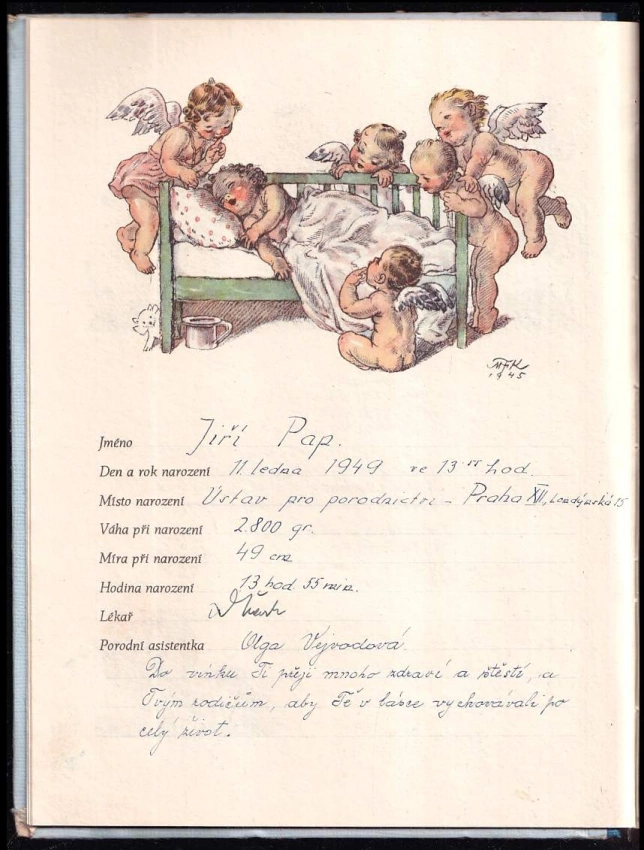 MFK
1945
Jméno Jiří Pap.
Den a rok narození 11. ledna 1949 ve 13 55 hod.
Místo narození Ústav pro porodnictví - Praha XII, Londýnská 15
Váha při narození 2.800 gr.
Míra při narození 49 cm
Hodina narození 13 hod 55 min.
Lékař
Porodní asistentka Olga Vejvodová.
Do vínku Ti přeji mnoho zdraví a štěstí, a
Tvým rodičům, aby Tě v lásce vychovávali po
celý život.